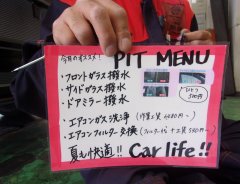 今月のオススメ!
PIT MENU
・フロントガラス撥水
・サイドガラス撥水
・ドアミラー撥水
ひとつ
500円
・エアコンガス洗浄 (作業工賃 4080円~)
・エアコンフィルター交換 (フィルター代+工賃 540円~)
夏も快適!! Car life!!